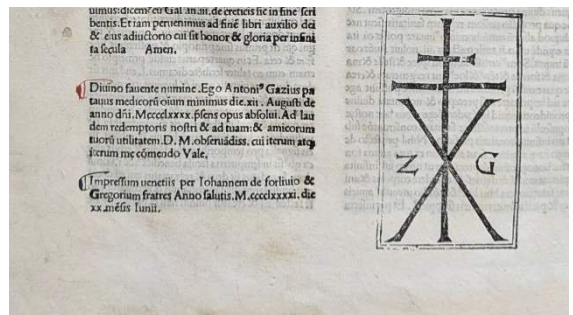 uimus: dicemꝰ cū Gal. de creticis sic in fine scri
bentis. Et iam peruenimus ad finē libri auxilio dei
& eius adiuctorio cui sit honor & gloria per infini
ta secula Amen.
Diuino fauente numine. Ego Antoniꝰ Gazius pa
tauus medicorū oium minimus die .xii. Augusti de
anno dñi. Mcccclxxxx. psens opus absolui. Ad lau
dem redemptoris nostri & ad tuam: & amicorum
tuorū utilitatem. D. M. obseruādiss. cui iterum atq
iterum me cōmendo Vale.
Impressum uenetiis per Iohannem de forliuio &
Gregorium fratres Anno salutis. M.cccclxxxxi. die
xx .mēsis Iunii.
Z G